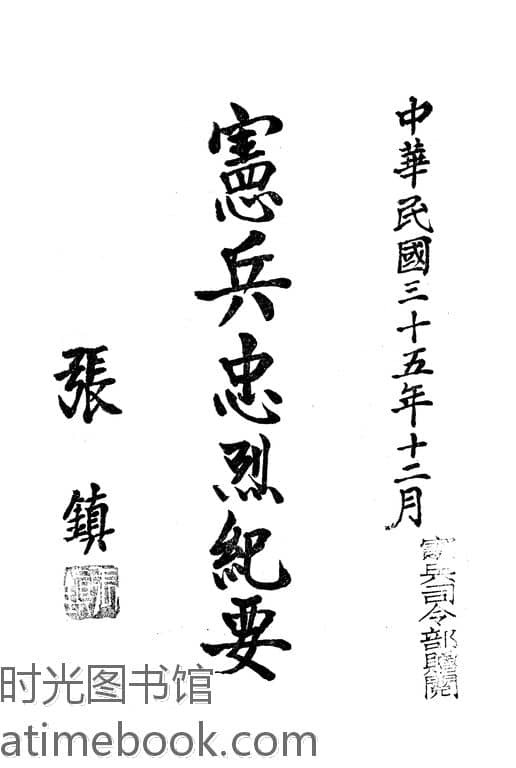 中華民國三十五年十二月
憲兵司令部贈閱
憲兵忠烈紀要
張鎮
时光图书馆
atimebook.com